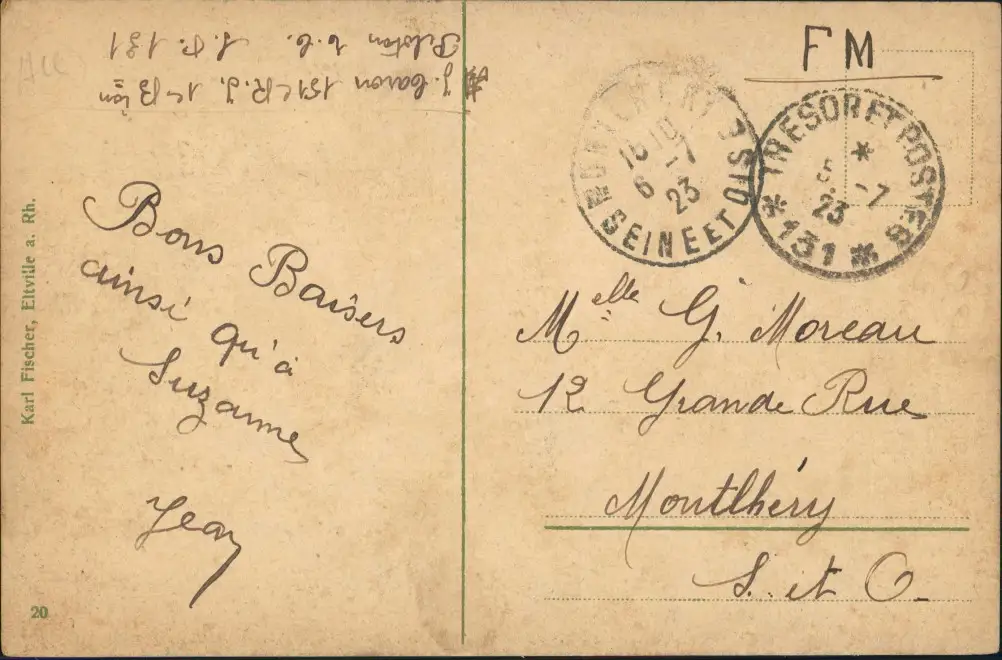 J. Caron 151e R.I. 1er Bion
Peloton S. P. 131
Bons Baisers
ainsi qu'à
Suzanne
Jean
Karl Fischer, Eltville a. Rh.
20
FM
MONTLHERY
16 10
6 -7
23
SEINE ET OISE
TRESOR ET POSTES
*
5 -7
23
* 131 *
Melle G. Moreau
12 Grande Rue
Montlhéry
S. et O.